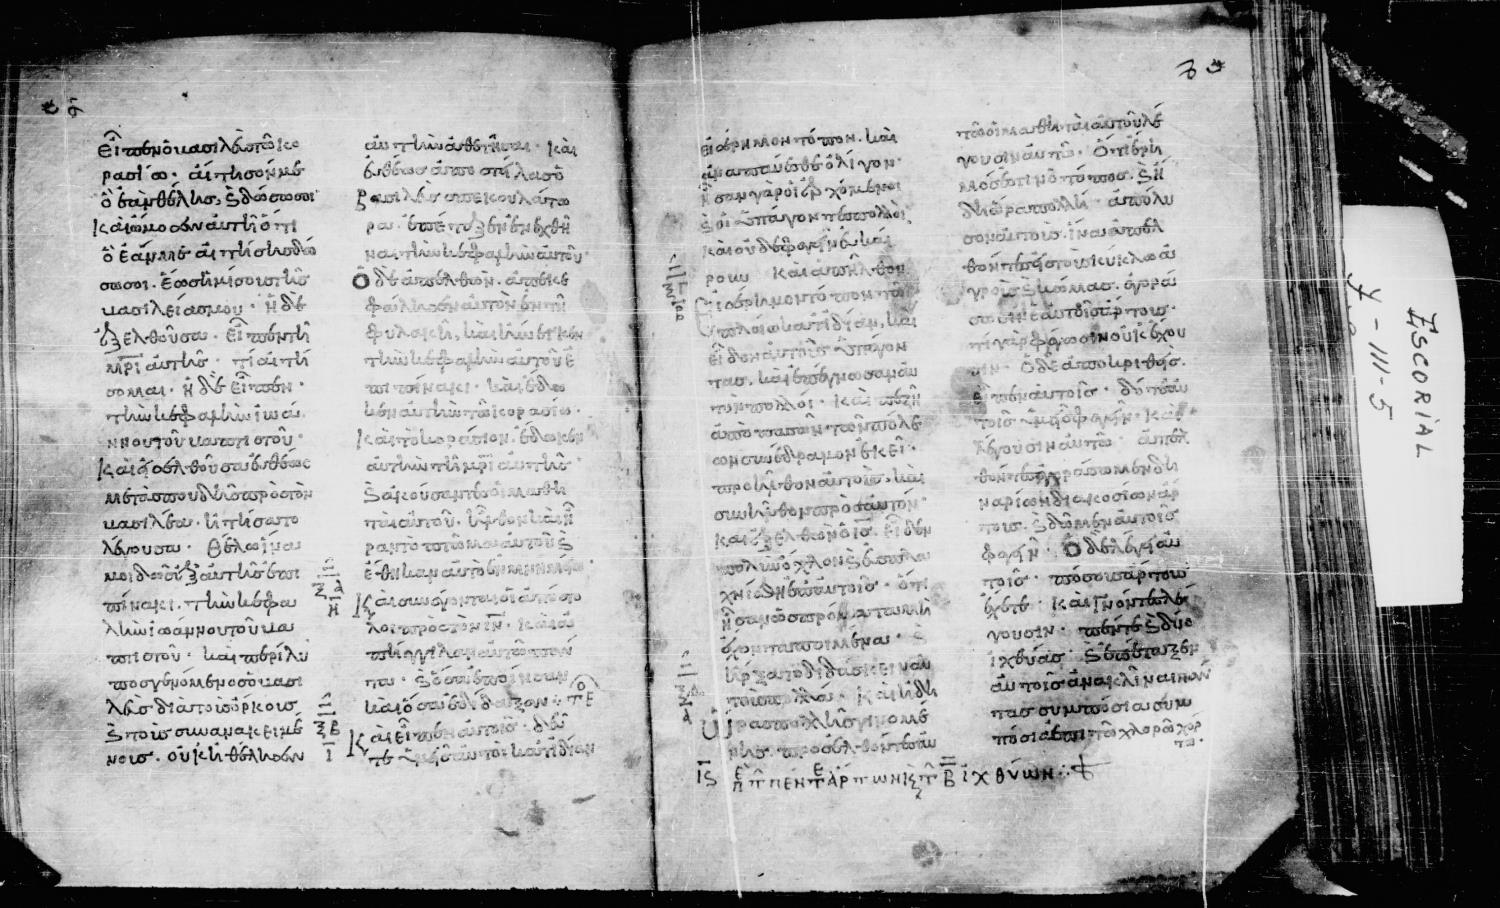 εἶπεν ὁ βασιλεὺς τῶ κο
ρασίω· αἴτησόν με
ὃ ἐὰν θέλης, ϗ δώσω σοι
Καὶ ὤμοσεν αὐτῆ ὅτι
ὃ ἐάν με αἰτήσης δώ
σω σοι· ἕως ἡμίσους τῆς
βασιλείας μου· ἡ δὲ
ἐξελθοῦσα· εἶπεν τῆ
μρὶ αὐτῆς· τί αἰτή
σομαι· ἡ δὲ εἶπεν·
τὴν κεφαλὴν ἰωά
ννου τοῦ βαπτιστοῦ·
Καὶ εἰσελθοῦσα εὐθέως
μετὰ σπουδῆς πρὸς τὸν
βασιλέα· ἠτήσατο
λέγουσα· θέλω ἵνα
μοι δῶς ἐξ αὐτῆς ἐπὶ
πίνακι· τὴν κεφα
λὴν ἰωάννου τοῦ βα
πτιστοῦ· καὶ περίλυ
πος γενόμενος ὁ βασι
λεὺς διὰ τοὺς ὅρκους
ϗ τοὺς συνανακειμέ
νους· οὐκ ἠθέλησεν
αὐτὴν ἀθετῆσαι· καὶ
εὐθέως ἀποστείλας ὁ
βασιλεὺς σπεκουλάτω
ρα· ἐπέταξεν ἐνεχθῆ
ναι τὴν κεφαλὴν αὐτοῦ·
Ὁ δὲ ἀπελθὼν· ἀπεκε
φάλισεν αὐτὸν ἐν τῆ
φυλακῆ, καὶ ἤνεγκεν
τὴν κεφαλὴν αὐτοῦ ἐ
πὶ πίνακι· καὶ ἔδω
κεν αὐτὴν τῶ κορασίω·
Καὶ τὸ κοράσιον· ἔδωκεν
αὐτὴν τῆ μρὶ αὐτῆς·
ϗ ἀκούσαντες οἱ μαθη
ταὶ αὐτοῦ· ἦλθον καὶ ἦ
ραν τὸ πτῶμα αὐτοῦ ϗ
ἔθηκαν αὐτὸ ἐν μνημείω·
Καὶ συνάγονται οἱ ἀπόστο
λοι πρὸς τὸν ιν· καὶ ἀ
πήγγειλαν αὐτῶ πάν
τα· ϗ ὅσα ἐποίησαν
καὶ ὅσα ἐδίδαξαν· τε
Καὶ εἶπεν αὐτοῖς· δεῦ
τε ὑμεῖς αὐτοὶ κατιδίαν
εἰς ἔρημον τόπον. καὶ
ἀναπαύεσθε ὀλίγον·
ἦσαν γὰρ οἱ ἐρχόμενοι
ϗ οἱ ὑπάγοντες πολλοί·
καὶ οὐδὲ φαγεῖν εὐκαί
ρουν Καὶ ἀπῆλθον
εἰς ἔρημον τόπον τῶ
πλοίω κατιδίαν, καὶ
εἶδον αὐτοὺς ὑπάγον
τας. καὶ ἐπέγνωσαν αὐ
τὸν πολλοί· καὶ πεζῆ
ἀπὸ πασῶν τῶν πόλε
ων συνέδραμον ἐκεῖ·
προῆλθον αὐτοὺς, καὶ
συνῆλθον πρὸς αὐτόν·
καὶ ἐξελθὼν ὁ ις. εἶδεν
πολὺν ὄχλον ϗ ἐσπλα
χνίσθη ἐπαυτοῖς· ὅτι
ἦσαν ὡς πρόβατα μὴ
ἔχοντα ποιμένα· ϗ
ἤρξατο διδάσκειν αὐ
τοὺς πολλά· Καὶ ἤδη
ὥρας πολλῆς γινομέ
νης· προσελθόντες αὐ
ΙϚ πεντε άρτων ϗ τ Β ἰχθύων
τῶ οἱ μαθηταὶ αὐτοῦ λέ
γουσιν αὐτῶ· ὅτι ἔρη
μός ἐστιν ὁ τόπος· ϗ ἤ
δη ὥρα πολλή· ἀπόλυ
σον αὐτοὺς· ἵνα ἀπελ
θόντες εἰς τοὺς κύκλω ἀ
γροὺς ϗ κώμας· ἀγορά
σωσιν ἑαυτοῖς ἄρτους·
τί γὰρ φάγωσιν οὐκ ἔχου
σιν· Ὁ δὲ ἀποκριθεὶς·
εἶπεν αὐτοῖς· δότε αὐ
τοῖς ὑμεῖς φαγεῖν· Καὶ
λέγουσιν αὐτῶ· ἀπελ
θόντες ἀγοράσωμεν δη
ναρίων διακοσίων ἄρ
τους· ϗ δῶμεν αὐτοῖς
φαγεῖν· Ὁ δὲ λέγει αὐ
τοῖς· πόσους ἄρτους
ἔχετε· καὶ γνόντες λέ
γουσιν· πέντε ϗ δύο
ἰχθύας· ϗ ἐπέταξεν
αὐτοῖς ἀνακλῖναι πάν
τας συμπόσια συμ
πόσια ἐπὶ τῶ χλωρῶ χόρ
τω·
ESCORIAL
Y-III-5